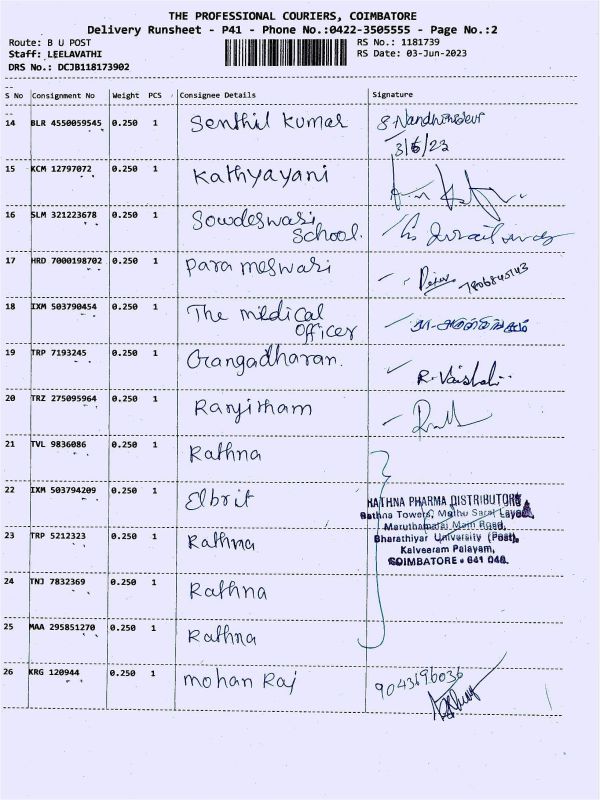 THE PROFESSIONAL COURIERS, COIMBATORE
Delivery Runsheet - P41 - Phone No.:0422-3505555 - Page No.:2
Route: B U POST RS No.: 1181739
Staff: LEELAVATHI RS Date: 03-Jun-2023
DRS No.: DCJB118173902
S No Consignment No Weight PCS Consignee Details Signature
14 BLR 4550059545 0.250 1 Senthil Kumar
3/6/23
15 KCM 12797072 0.250 1 Kathyayani
16 SLM 321223678 0.250 1 Sowdeswari
School.
17 HRD 7000198702 0.250 1 Parameswari 7806845143
18 IXM 503790454 0.250 1 The medical
officer
19 TRP 7193245 0.250 1 Gangadharan. R. Vaishali..
20 TRZ 275095964 0.250 1 Ranjitham
21 TVL 9836086 0.250 1 Rathna
22 IXM 503794209 0.250 1 Elbrit
RATHNA PHARMA DISTRIBUTORS
Rathna Towers, Muthu Saral Layout
23 TRP 5212323 0.250 1 Rathna
Maruthamalai Main Road,
Bharathiyar University (Post),
Kalveeram Palayam,
COIMBATORE • 641 046.
24 TNJ 7832369 0.250 1 Rathna
25 MAA 295851270 0.250 1 Rathna
26 KRG 120944 0.250 1 Mohan Raj 9043696036